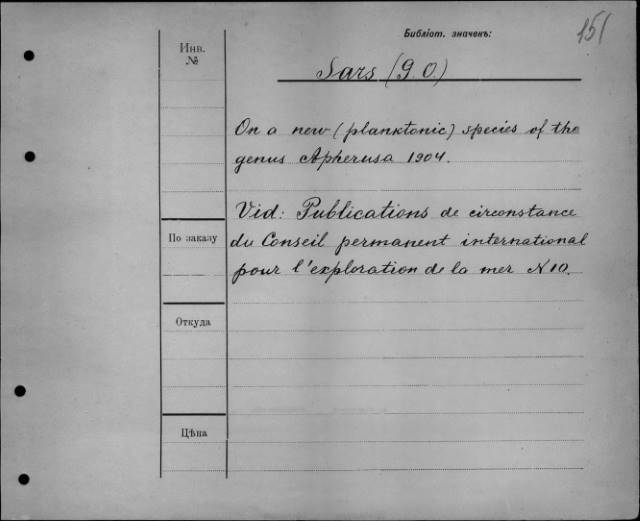 Библіот. значекъ:
151
Инв.
№
Sars (G. O.)
On a new (planktonic) species of the
genus Apherusa 1904.
Vid: Publications de circonstance
По заказу
du Conseil permanent international
pour l'exploration de la mer N 10.
Откуда
Цѣна